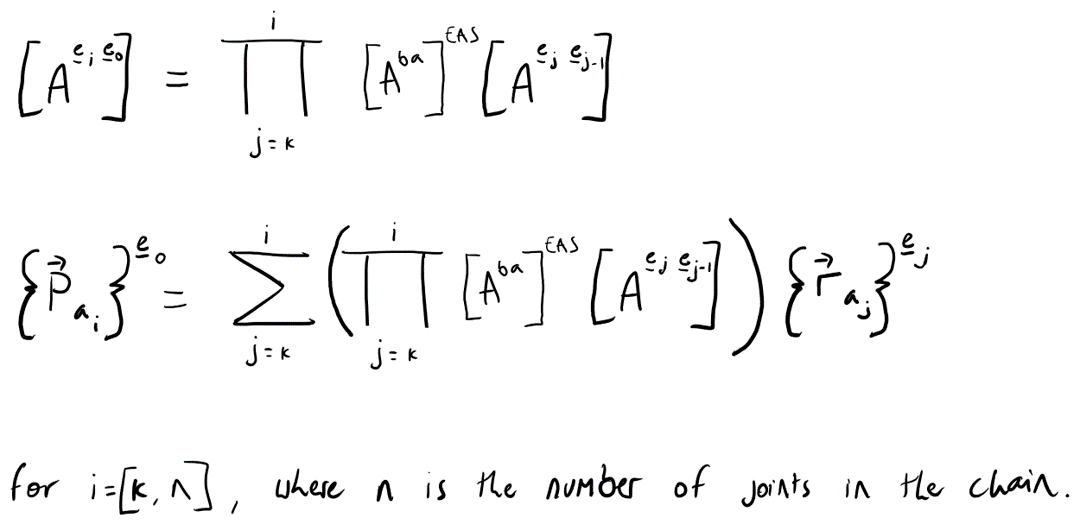 [A^{e_i e_0}] = \prod_{j=k}^{i} [A^{ba}]^{EAS} [A^{e_j e_{j-1}}]
{\vec{P}_{a_i}}^{e_0} = \sum_{j=k}^{i} ( \prod_{j=k}^{i} [A^{ba}]^{EAS} [A^{e_j e_{j-1}}] ) {\vec{r}_{a_j}}^{e_j}
for i=[k, n], where n is the number of joints in the chain.